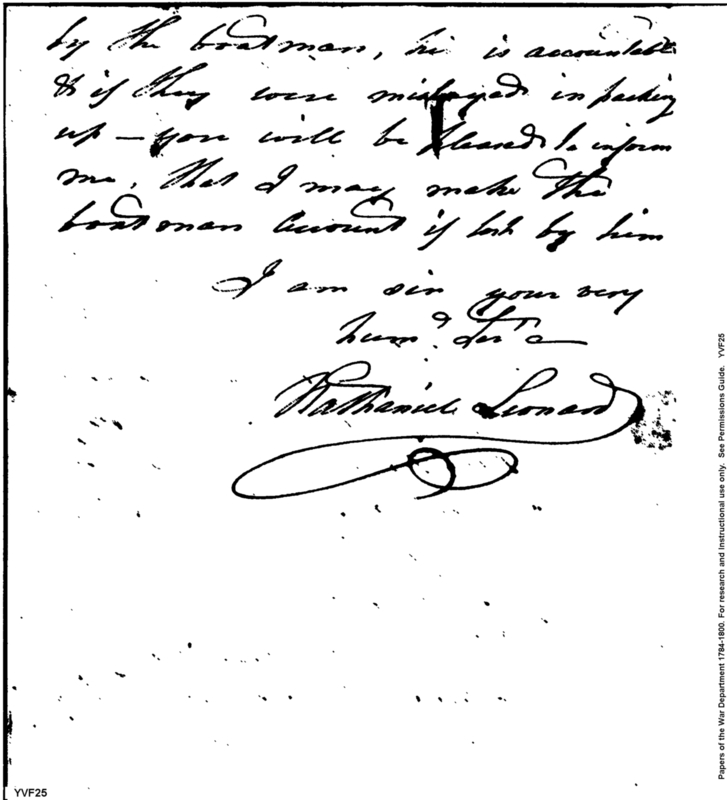 by the boatman, he is accountable
& if they were mislayed in packing
up — you will be pleased to inform
me, that I may make the
boatman account if lost by him
I am sir your very
humd Sert
Nathaniel Leonard
Papers of the War Department 1784-1800. For research and instructional use only. See Permissions Guide. YVF25
YVF25